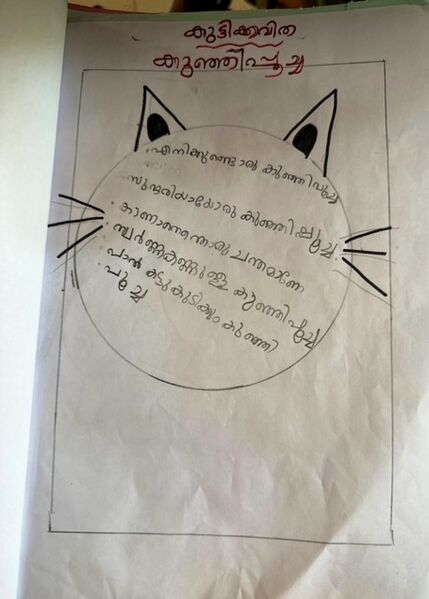 കുട്ടിക്കവിത
കുഞ്ഞിപ്പൂച്ച
എനിക്കുണ്ടൊരു കുഞ്ഞിപൂച്ച
സുന്ദരിയായൊരു കുഞ്ഞിപ്പൂച്ച
കാണാനെന്തൊരു ചന്തമാണേ
സ്വർണ്ണകണ്ണുള്ള കുഞ്ഞിപ്പൂച്ച
പാൽ കട്ടുകുടിക്കും കുഞ്ഞി
പൂച്ച